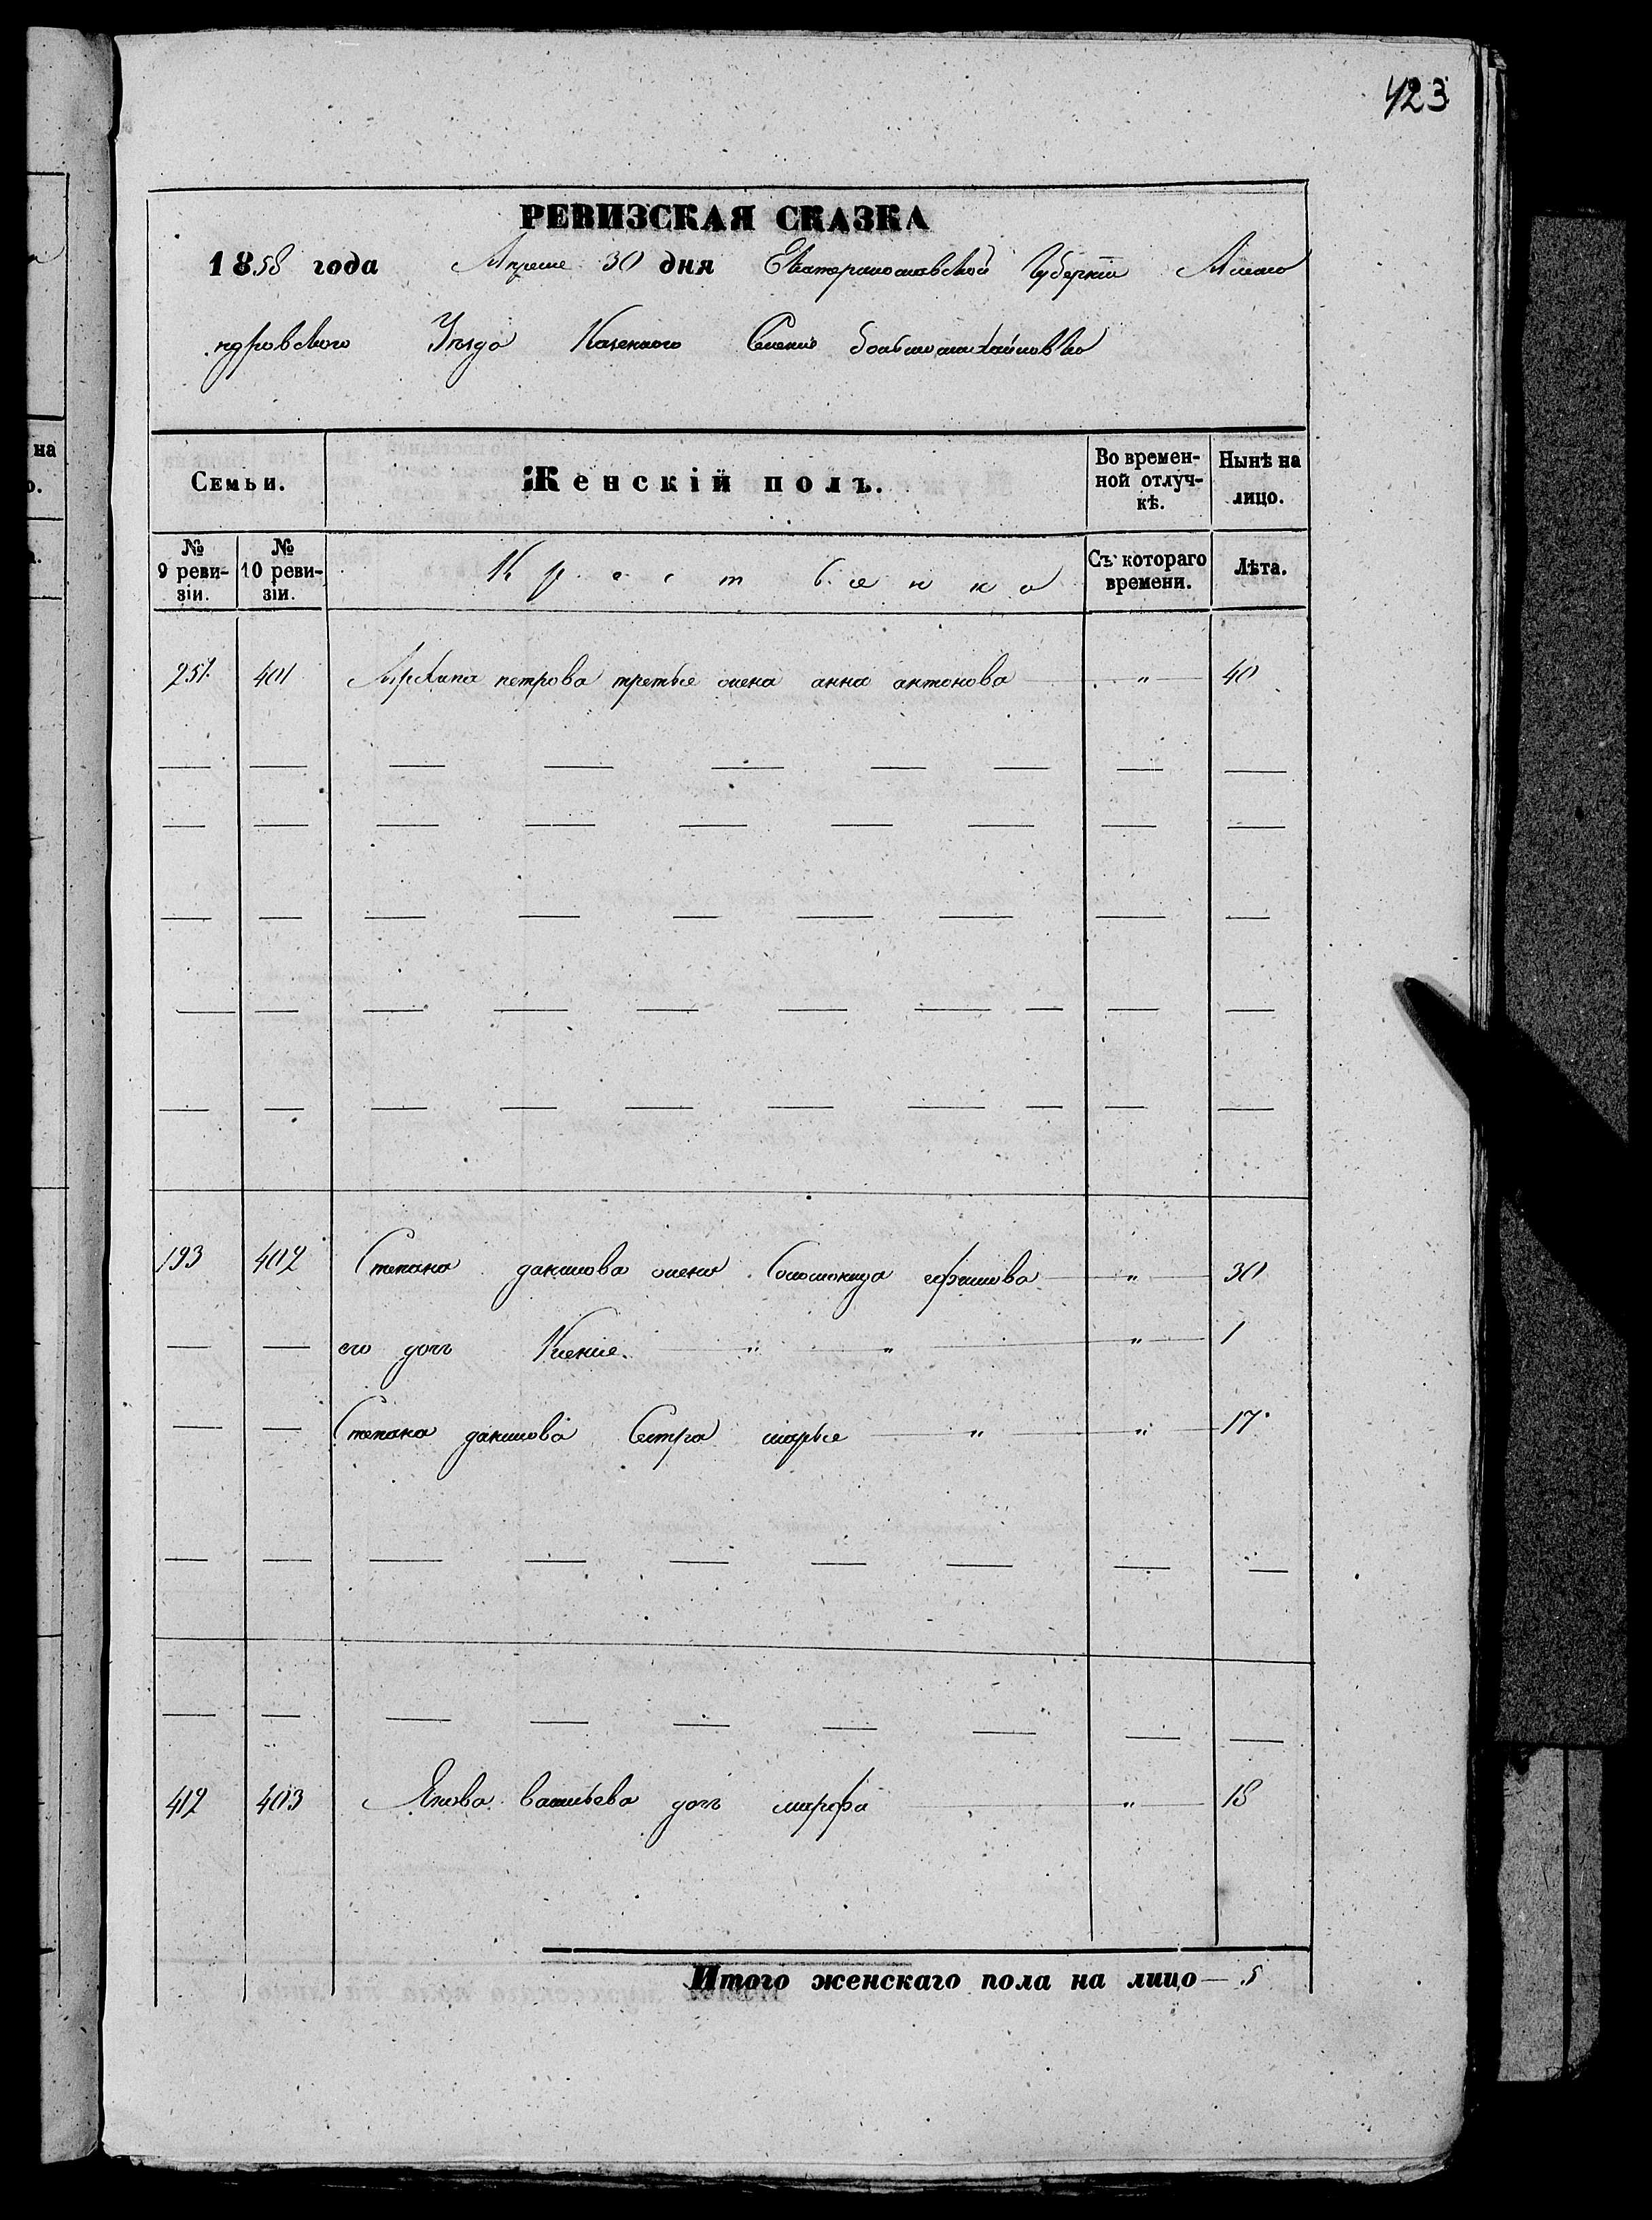 423
на
о.
РЕВИЗСКАЯ СКАЗКА
1858 года Апреля 30 дня Екатеринославской Губернии Алекса
ндровского Уезда Казенного Селения большемихайловки
Семьи.
Женскій полъ.
Во времен-
ной отлуч-
кѣ.
Нынѣ на
лицо.
№
9 реви-
зіи.
№
10 реви-
зіи.
Крестьянка
Съ котораго
времени.
Лѣта.
251 401 Архипа петрова третья жена анна антонова " 40
193 402 Степана данилова жена Соломонида ефимова " 30
его дочь Ксения " " " 1
Степана данилова Сестра марья " " 17
412 403 Якова васильева дочь марфа " 18
Итого женскаго пола на лицо 5